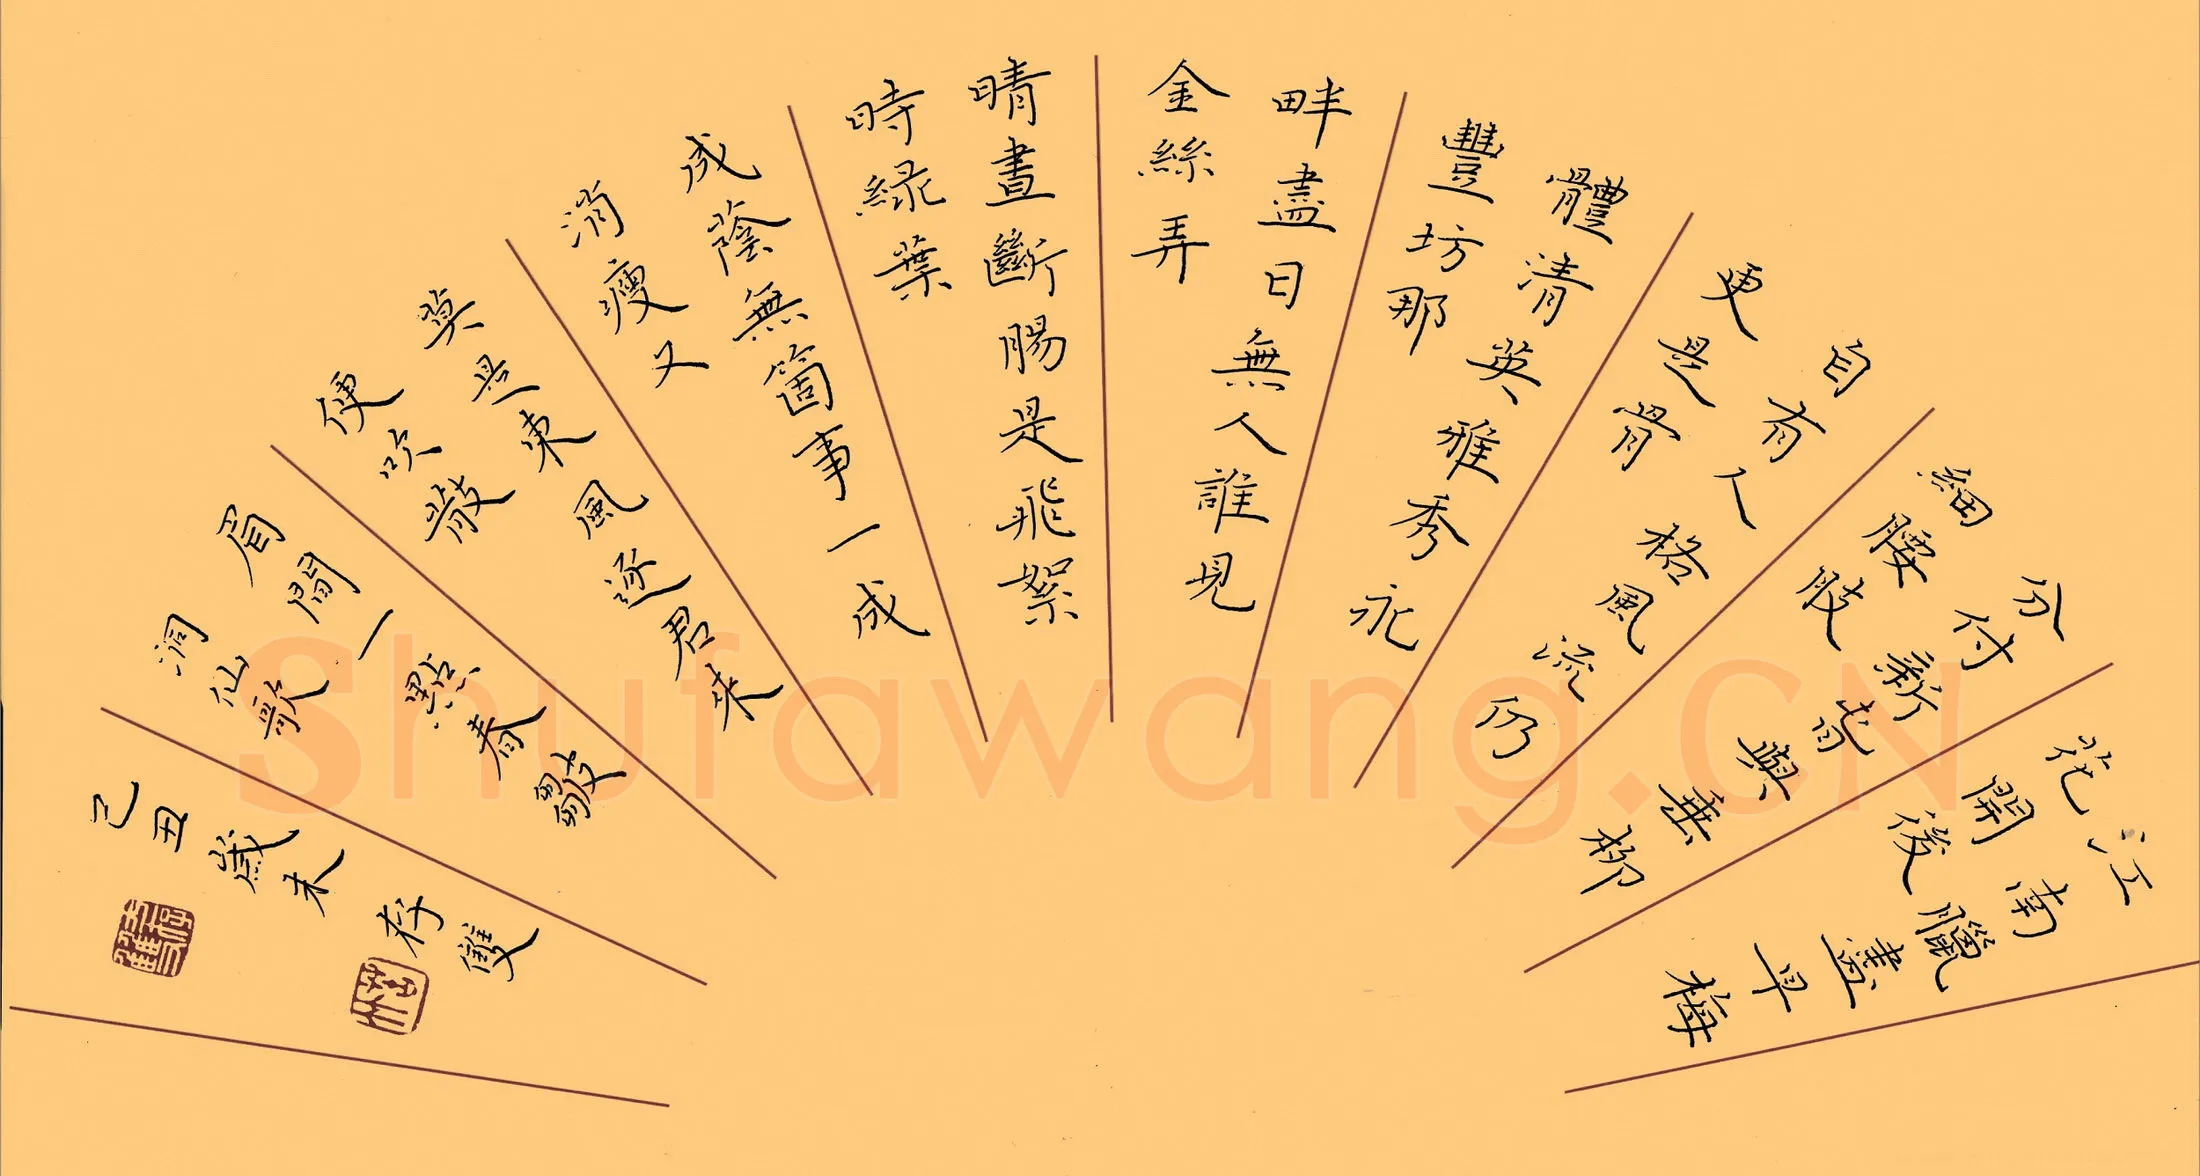 江南臘盡早梅
花開後
分付新春與垂柳
細腰肢
自有入格風流仍
更是骨
體清英雅秀永
豐坊那
畔盡日無人誰見
金絲弄
晴晝斷腸是飛絮
時緑葉
成蔭無箇事一成
消瘦又
莫是東風逐君來
便吹散
眉間一點春皺
洞仙歌
己丑歲末 存雙
Shufawang.CN